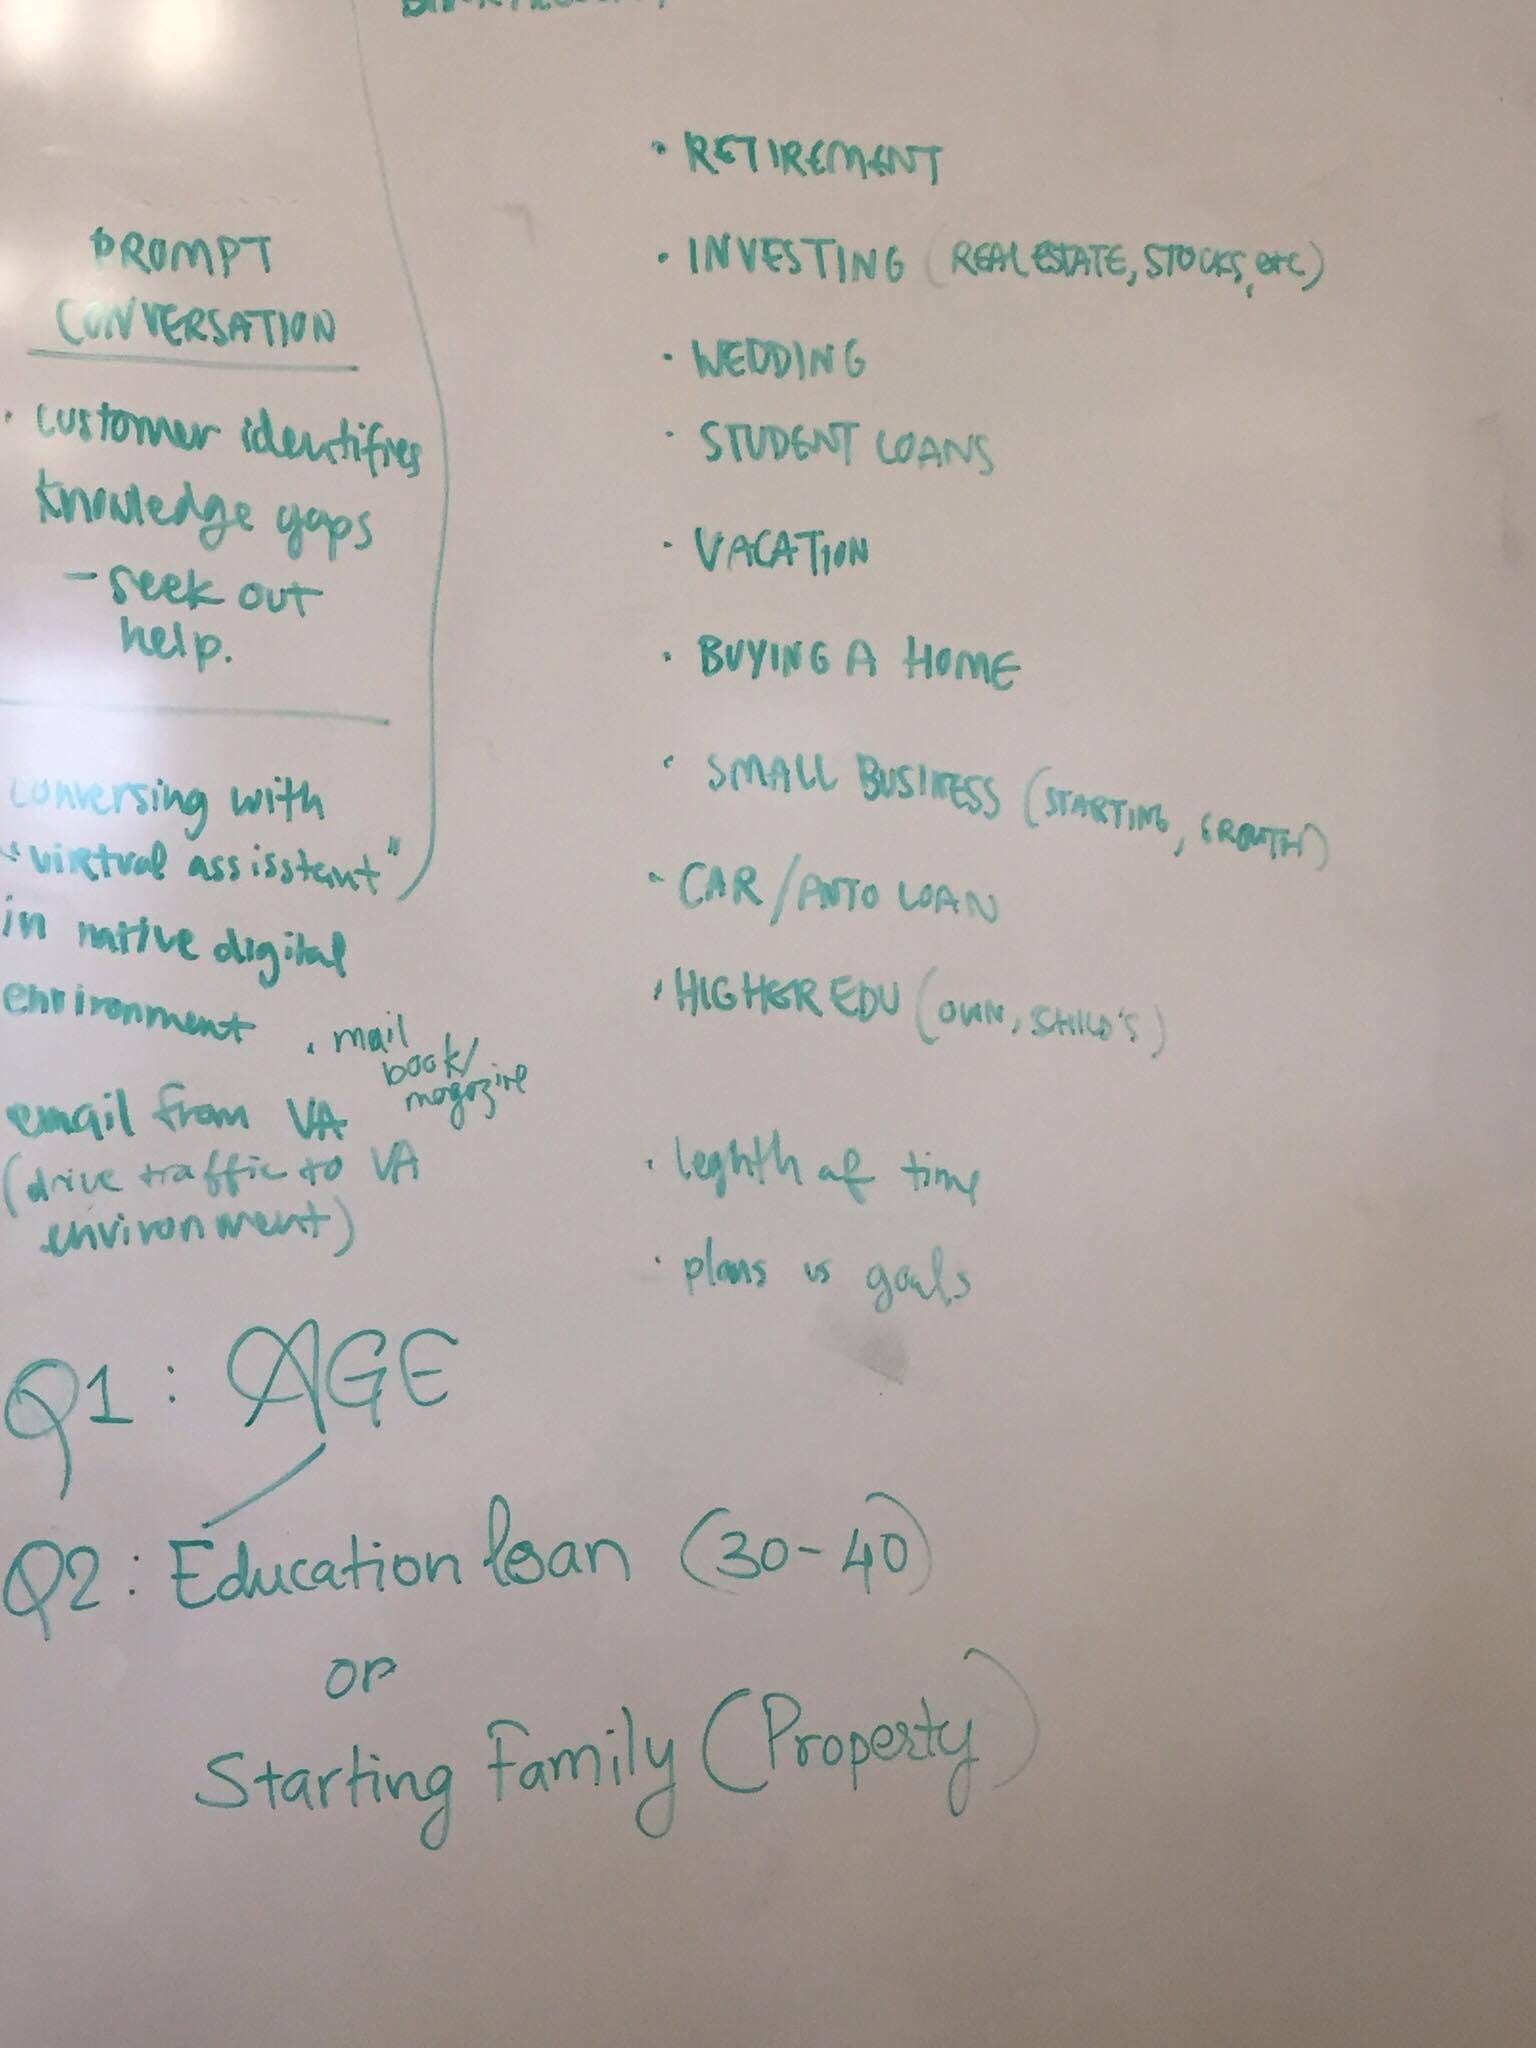 PROMPT
CONVERSATION
• customer identifies
knowledge gaps
- seek out
help.
conversing with
"virtual assisstant"
in native digital
environment
• mail
book/
magazine
email from VA
(drive traffic to VA
environment)
• RETIREMENT
• INVESTING (REAL ESTATE, STOCKS, etc)
• WEDDING
• STUDENT LOANS
• VACATION
• BUYING A HOME
• SMALL BUSINESS (STARTING, GROWTH)
• CAR/AUTO LOAN
• HIGHER EDU (OWN, CHILD'S)
• leghth of time
• plans vs goals
Q1: AGE
Q2: Education loan (30-40)
or
Starting Family (Property)